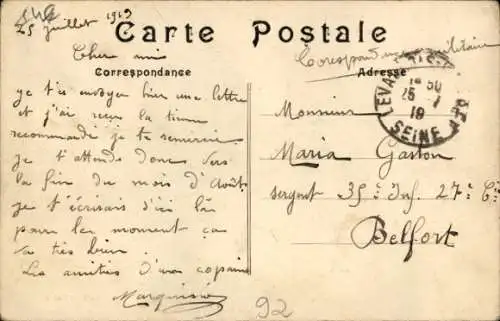 25 juillet 1919
Carte Postale
Cher ami
Correspondance militaire
Correspondance
Adresse
je t'ai envoyer hier une lettre
et j'ai reçu la tienne
recommandé je te remercie
je t'attends donc vers
la fin du mois d'Août
je t'écrirais d'ici là
pour le moment ça
va très bien
Les amitiés d'un copain
Monsieur
Maria Gaston
sergent 35e Inf. 27e Cie
Belfort
SEINE
25 7
19
92